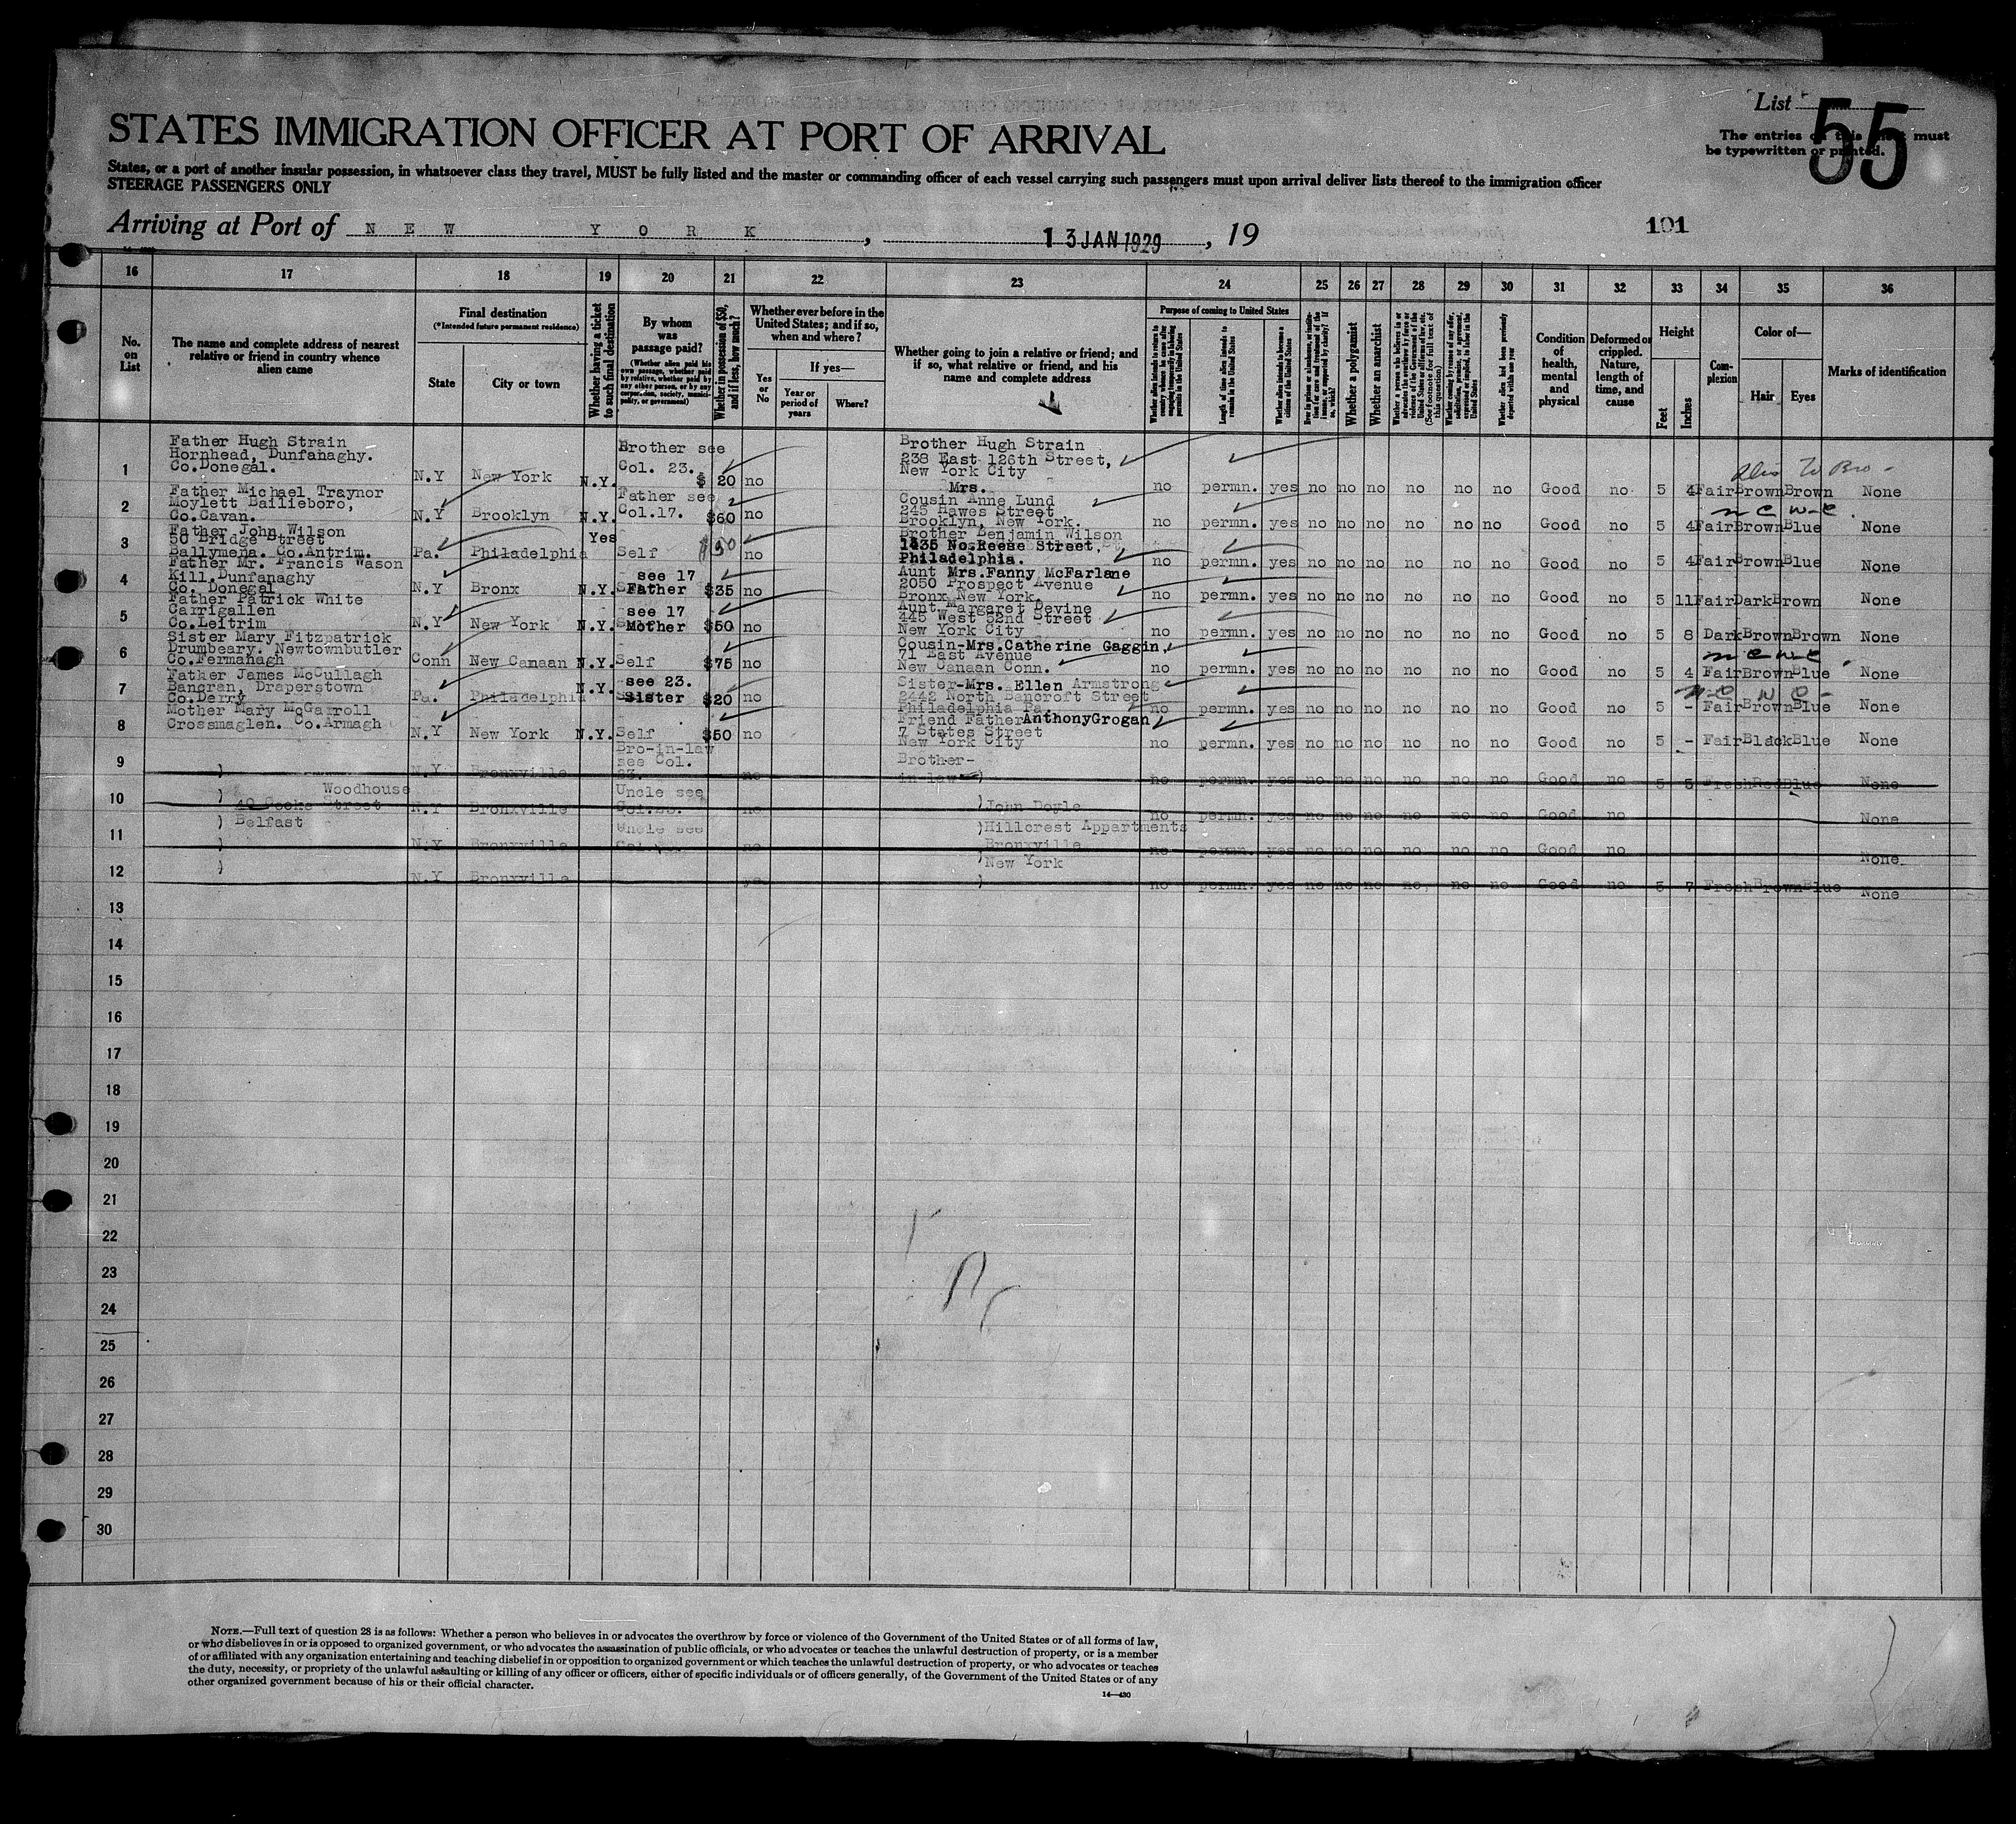 List
55
The entries on this sheet must
be typewritten or printed.
STATES IMMIGRATION OFFICER AT PORT OF ARRIVAL
States, or a port of another insular possession, in whatsoever class they travel, MUST be fully listed and the master or commanding officer of each vessel carrying such passengers must upon arrival deliver lists thereof to the immigration officer
STEERAGE PASSENGERS ONLY
Arriving at Port of NEW YORK, 13 JAN 1929, 19
101
16 17 18 19 20 21 22 23 24 25 26 27 28 29 30 31 32 33 34 35 36
No. on List
The name and complete address of nearest
relative or friend in country whence
alien came
Final destination
(*Intended future permanent residence)
State
City or town
Whether having a ticket
to such final destination
By whom
was
passage paid?
(Whether alien paid his
own passage, whether paid
by relative, whether paid by
any other person, or by any
corporation, society, munici-
pality, or government)
Whether in possession of $50,
and if less, how much?
Whether ever before in the
United States; and if so,
when and where?
Yes
or
No
If yes—
Year or
period of
years
Where?
Whether going to join a relative or friend; and
if so, what relative or friend, and his
name and complete address
Purpose of coming to United States
Length of time alien intends to
remain in the United States
Whether alien intends to become a
citizen of the United States
Whether a polygamist
Whether an anarchist
Whether alien had been previously
deported within one year
Condition
of
health,
mental
and
physical
Deformed or
crippled.
Nature,
length of
time, and
cause
Height
Feet
Inches
Com-
plexion
Color of—
Hair
Eyes
Marks of identification
1
Father Hugh Strain
Hornhead, Dunfanaghy.
Co.Donegal.
N.Y New York N.Y.
Brother see
Col. 23.
$ 20 no
Brother Hugh Strain
238 East 126th Street,
New York City
no permn. yes no no no no no no Good no 5 4 Fair Brown Brown None
2
Father Michael Traynor
Moylett Bailieboro,
Co.Cavan.
N.Y Brooklyn N.Y.
Father see
Col.17.
$60 no
Mrs.
Cousin Anne Lund
245 Hawes Street
Brooklyn, New York.
no permn. yes no no no no no no Good no 5 4 Fair Brown Blue None
3
Father John Wilson
50 Bridge Street
Ballymena. Co.Antrim.
Pa. Philadelphia Yes Self $50 no
Brother Benjamin Wilson
1435 No.Reese Street,
Philadelphia.
no permn. yes no no no no no no Good no 5 4 Fair Brown Blue None
4
Father Mr. Francis Wason
Kill,Dunfanaghy
Co. Donegal
N.Y Bronx N.Y.
see 17
Father $35 no
Aunt Mrs.Fanny McFarlane
2050 Prospect Avenue
Bronx New York.
no permn. yes no no no no no no Good no 5 11 Fair Dark Brown None
5
Father Patrick White
Carrigallen
Co.Leitrim
N.Y New York N.Y.
see 17
Mother $50 no
Aunt Margaret Devine
445 West 52nd Street
New York City
no permn. yes no no no no no no Good no 5 8 Dark Brown Brown None
6
Sister Mary Fitzpatrick
Drumbeary. Newtownbutler
Co.Fermanagh
Conn New Canaan N.Y. Self $75 no
Cousin-Mrs.Catherine Gaggin,
71 East Avenue
New Canaan Conn.
no permn. yes no no no no no no Good no 5 4 Fair Brown Blue None
7
Father James McCullagh
Bancran, Draperstown
Co.Derry
Pa. Philadelphia N.Y.
see 23.
Sister $20 no
Sister-Mrs. Ellen Armstrong
2442 North Bancroft Street
Philadelphia Pa.
no permn. yes no no no no no no Good no 5 - Fair Brown Blue None
8
Mother Mary McGarroll
Crossmaglen. Co.Armagh
N.Y New York N.Y. Self $50 no
Friend Father Anthony Grogan
7 States Street
New York City
no permn. yes no no no no no no Good no 5 - Fair Black Blue None
9
N.Y Bronxville
Bro-in-law
see Col.
23.
no
Brother-
in-law )
no permn. yes no no no no no no Good no 5 5 Fresh Red Blue None
10
Woodhouse
40 Cooke Street
N.Y Bronxville
Uncle see
Col.23.
no
)John Doyle
no permn. yes no no no no no no Good no None
11
) Belfast
N.Y Bronxville
Uncle see
no
)Hillcrest Appartments
Bronxville
no permn. yes no no no no no no Good no None
12
N.Y Bronxville
)New York
no permn. yes no no no no no no Good no 5 7 Fresh Brown Blue None
13
14
15
16
17
18
19
20
21
22
23
24
25
26
27
28
29
30
NOTE.—Full text of question 28 is as follows: Whether a person who believes in or advocates the overthrow by force or violence of the Government of the United States or of all forms of law,
or who disbelieves in or is opposed to organized government, or who advocates the assassination of public officials, or who advocates or teaches the unlawful destruction of property, or is a member
of or affiliated with any organization entertaining and teaching disbelief in or opposition to organized government or which teaches the unlawful destruction of property, or who advocates or teaches
the duty, necessity, or propriety of the unlawful assaulting or killing of any officer or officers, either of specific individuals or of officers generally, of the Government of the United States or of any
other organized government because of his or their official character.
14—430